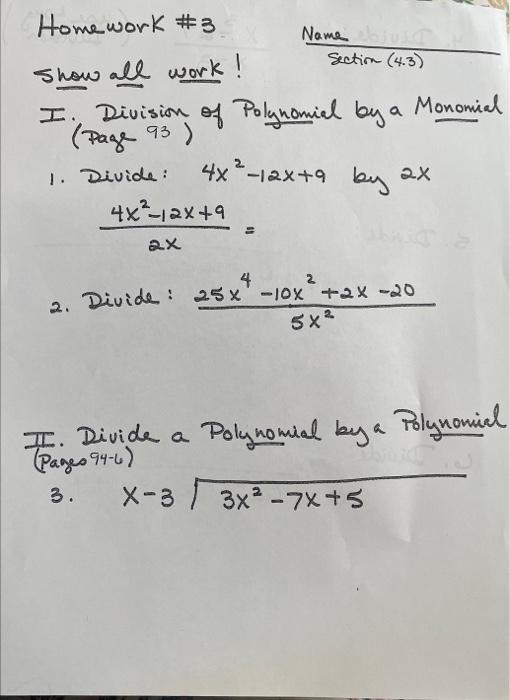 Homework #3
Name
Section (4.3)
Show all work!
I. Division of Polynomial by a Monomial
(Page 93)
1. Divide: 4x²-12x+9 by 2x
4x²-12x+9
=
2x
2. Divide: 25x⁴-10x²+2x-20
5x²
II. Divide a Polynomial by a Polynomial
(Pages 94-6)
3. x-3 ⟌ 3x²-7x+5